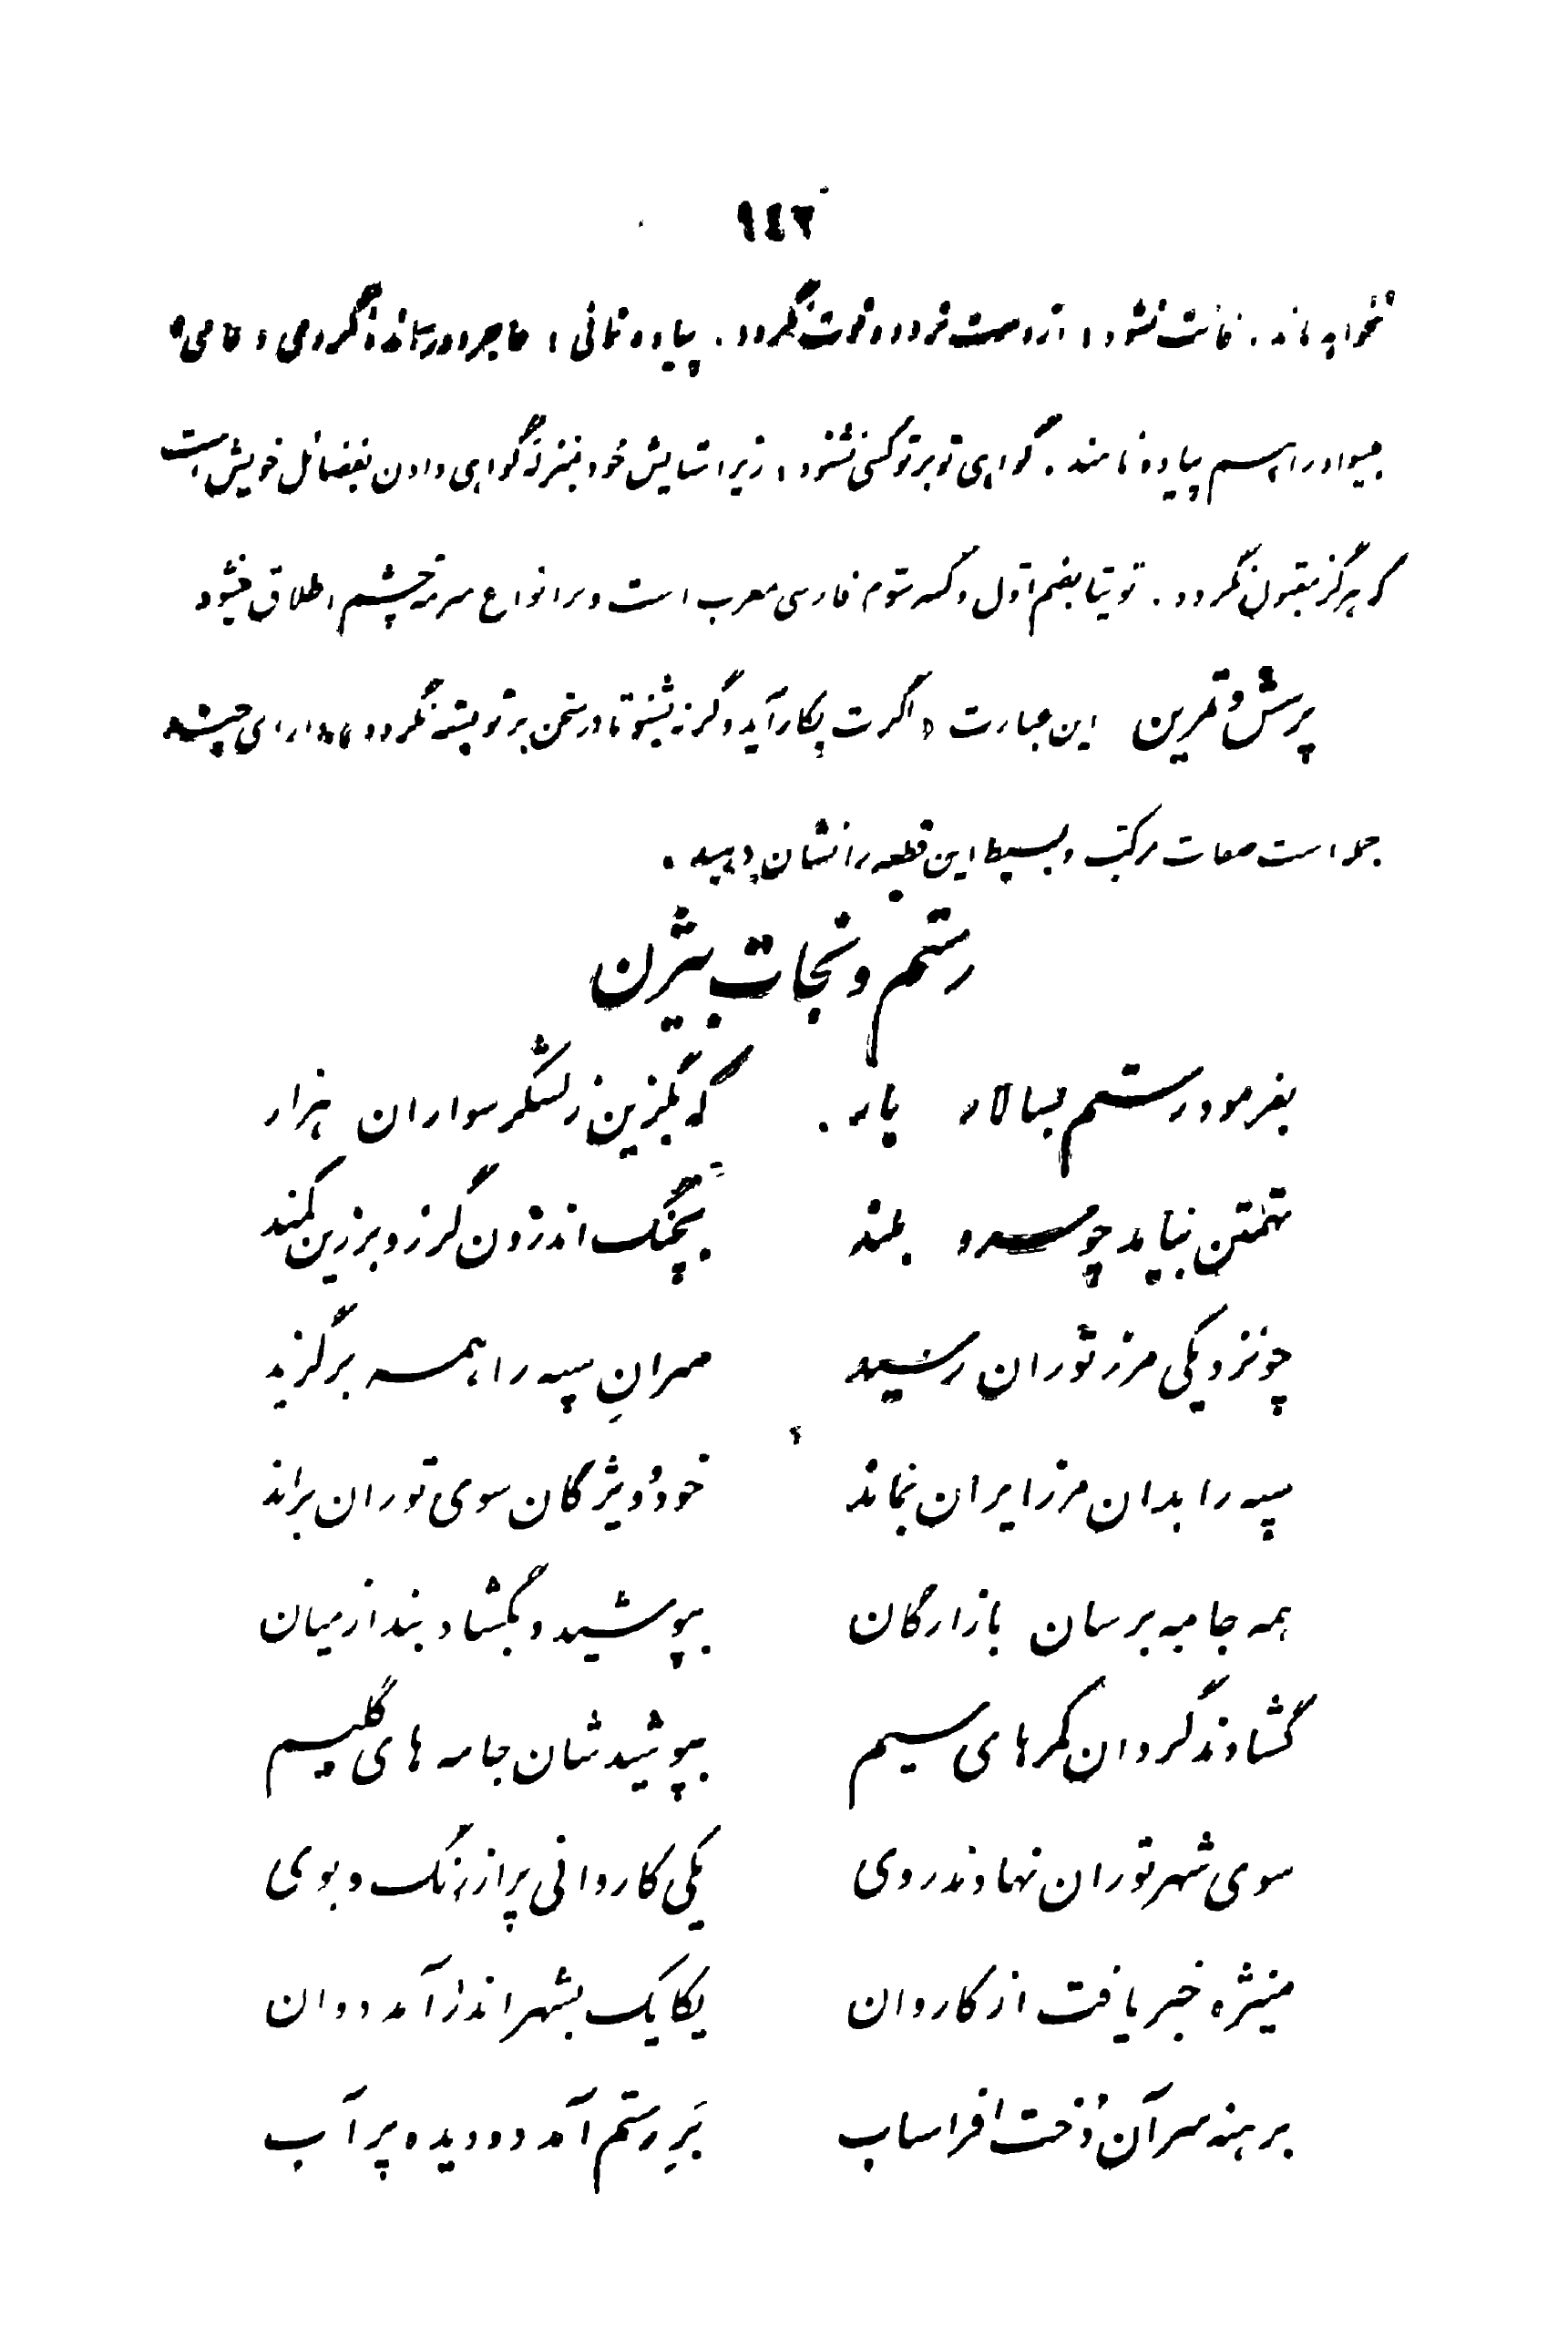 ١٤٢
نخواهد ماند . فائت نشود ، از دست نرود و فوت نگردد . پیاده نمانی ، عاجز و درمانده نگردی ، عامی
بیسواد را هم پیاده نامند . گواهی تو بر تو کسی نشنود ، زیرا ستایش خود بمنزله گواهی دادن بفضائل خویش است
که هرگز مقبول نگردد . توتیا بضم اول و کسر سوم فارسی معرب است و بر انواع سرمه چشم اطلاق میشود
پرسش و تمرین این عبارت « اگرت بکار آید و گرنه بشنو تا در سخن بر تو بسته نگردد » دارای چند
جمله است صفات مرکب و بسیط این قطعه را نشان دهید .
رستم و نجات بیژن
بفرمود رستم بسالار بار . که بگزین ز لشکر سواران هزار
تهمتن بیامد چو سرو بلند بچنگ اندرون گرز و برزین کمند
چو نزدیکی مرز توران رسید سران سپه را همه برگزید
سپه را بدان مرز ایران بماند خود و ویژگان سوی توران براند
همه جامه برسان بازارگان بپوشید و بگشاد بند از میان
گشادند گردان کمرهای سیم بپوشیدشان جامه های گلیم
سوی شهر توران نهادند روی یکی کاروانی پر از رنگ و بوی
منیژه خبر یافت از کاروان یکایک بشهر اندر آمد دوان
برهنه سر آن دُخت افراسیاب بَرِ رستم آمد دو دیده پر آب